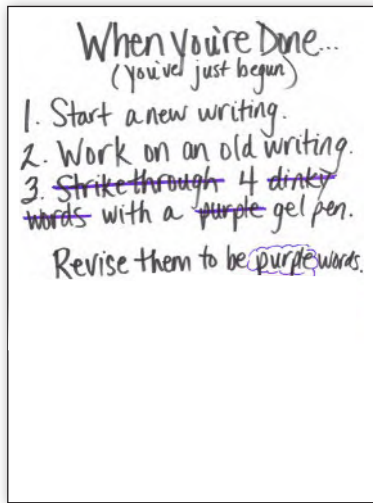 When You're Done...
(you've just begun)
1. Start a new writing.
2. Work on an old writing.
3. Strikethrough 4 dinky
words with a purple gel pen.
Revise them to be purple words.